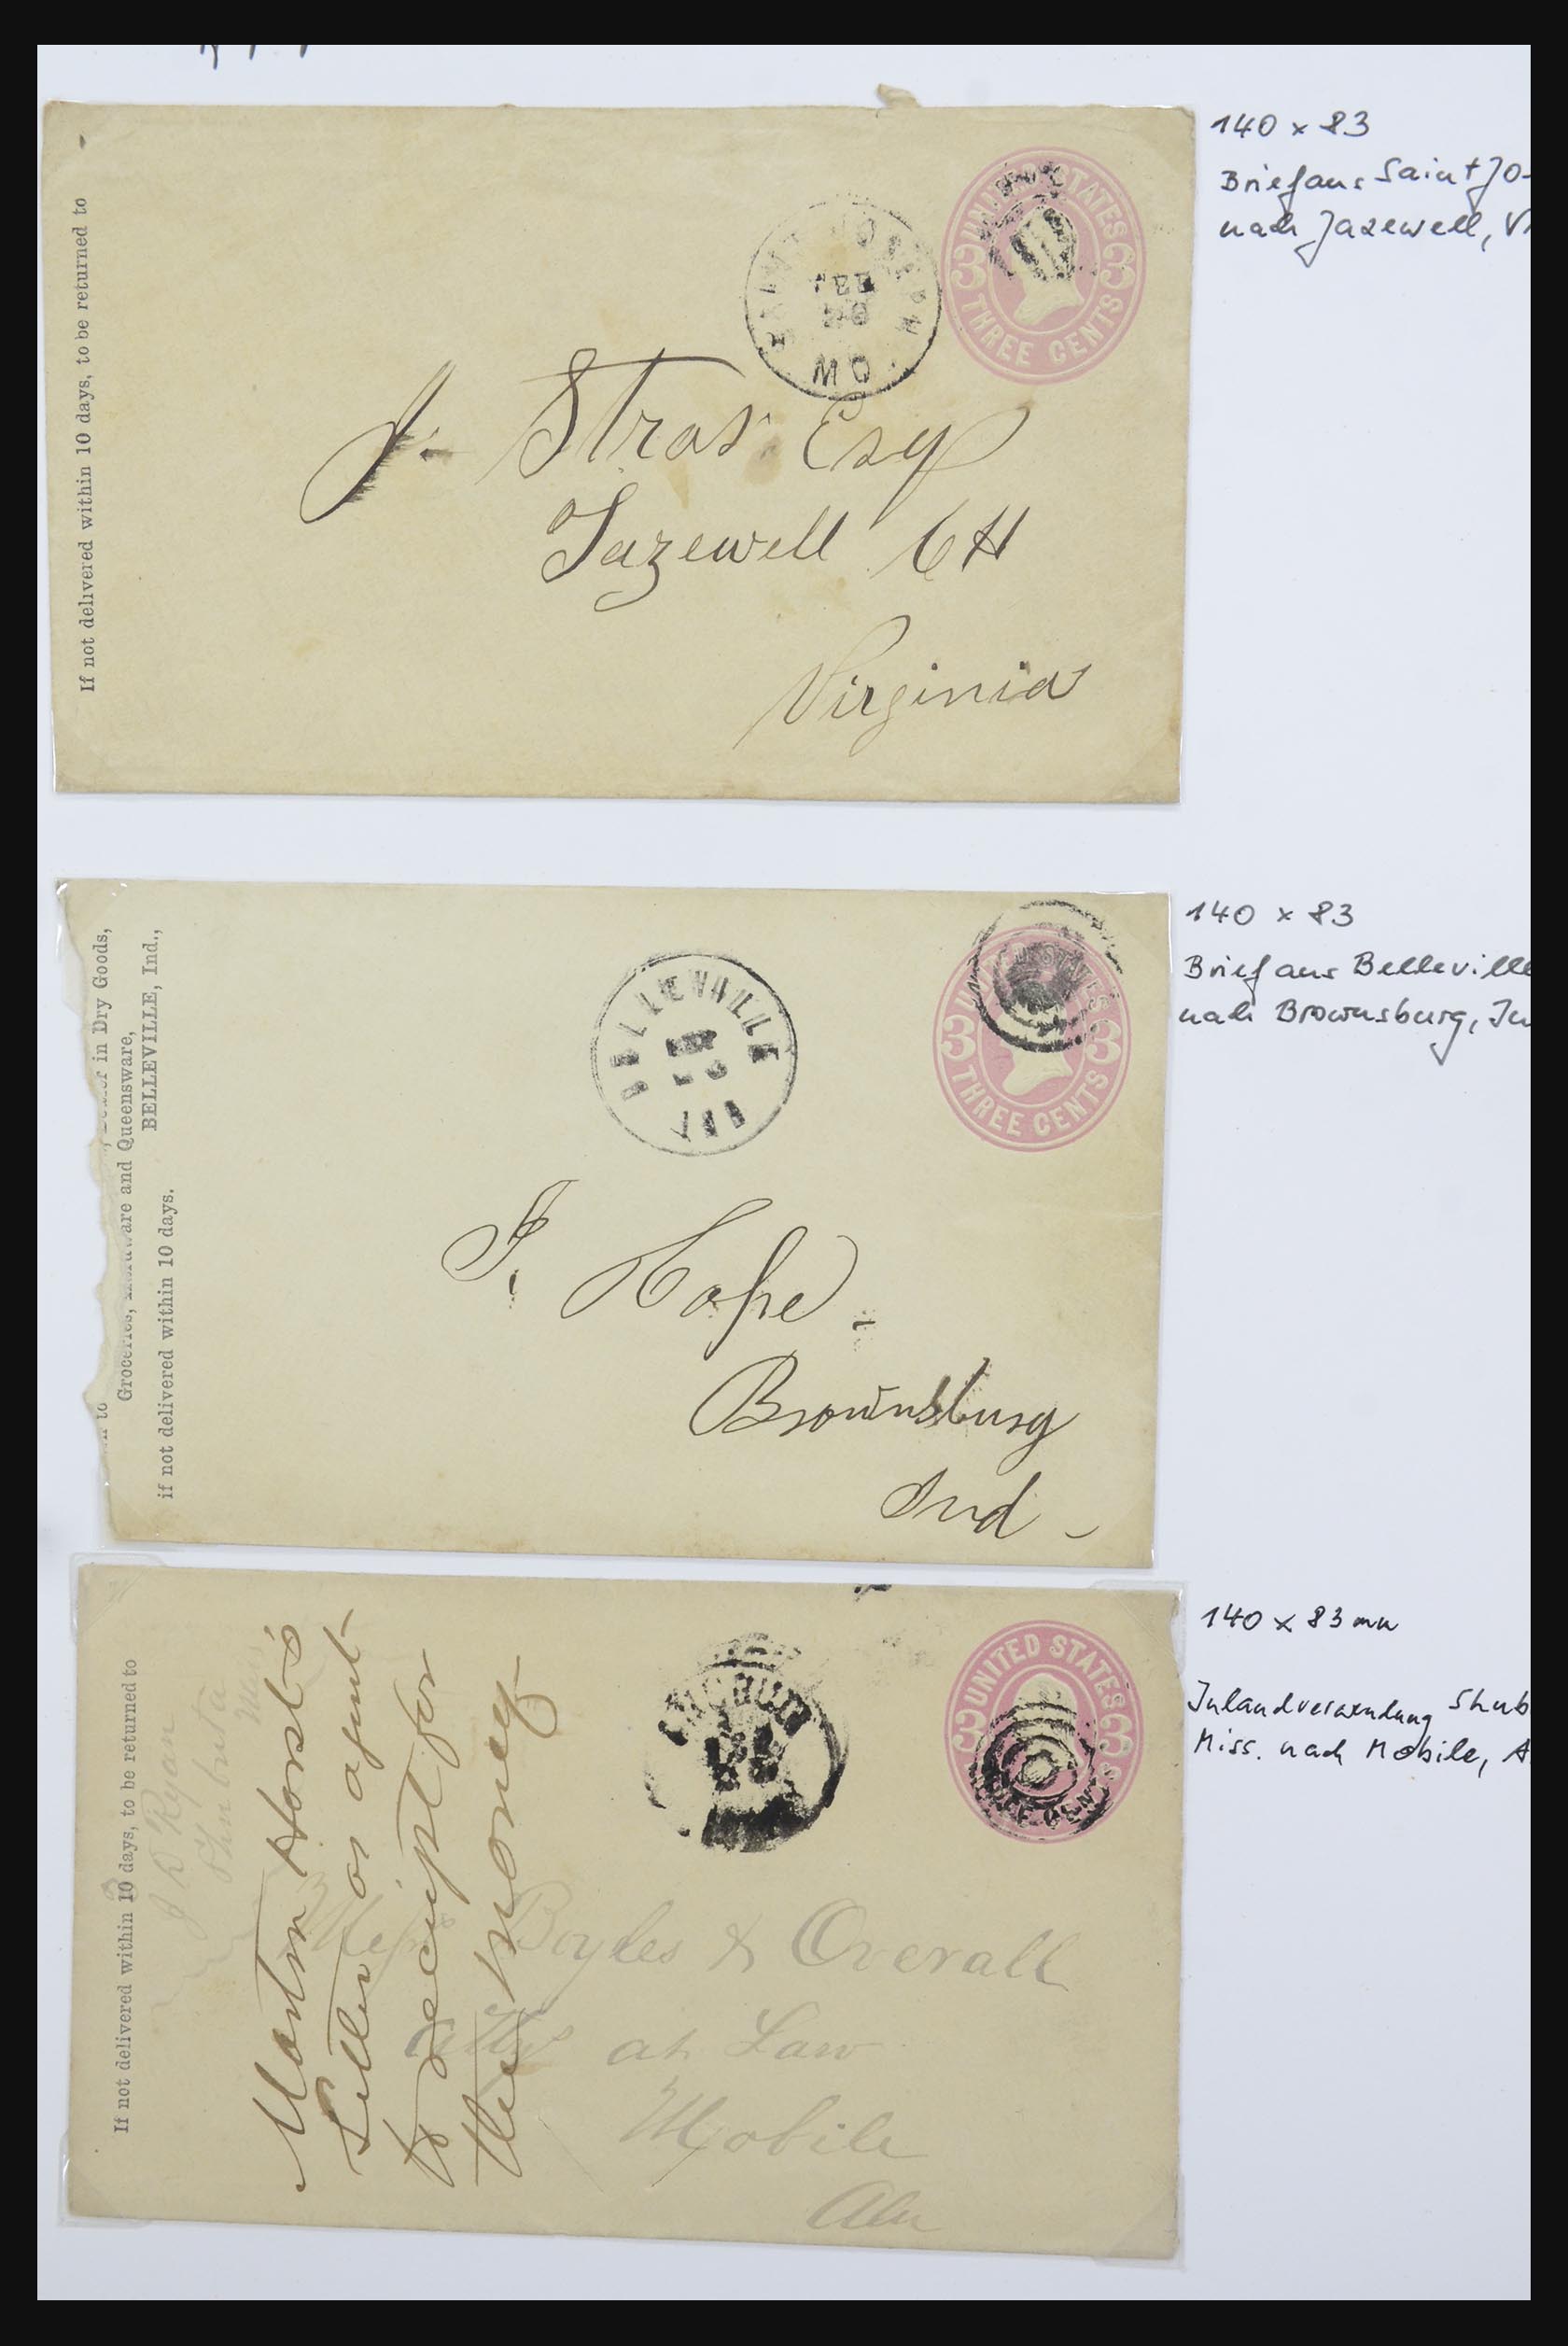 If not delivered within 10 days, to be returned to
SAINT JOSEPH
FEB
MO
UNITED STATES
3 3
THREE CENTS
J. Stras Esq
Tazewell CH
Virginia
140 x 83
Brief aus Saint Jo-
nach Tazewell, V
in Dry Goods,
Groceries, Hardware and Queensware,
BELLEVILLE, Ind.,
if not delivered within 10 days.
BELLEVILLE
IND
UNITED STATES
3 3
THREE CENTS
J. Hope
Brownsburg
Ind
140 x 83
Brief aus Belleville
nach Brownsburg, In
If not delivered within 10 days, to be returned to
J D Ryan
Shubuta
Miss
Martin Horst's
Letter as agent
to receipt for
the money
UNITED STATES
3 3
THREE CENTS
Mess Boyles & Overall
Attys at Law
Mobile
Ala
140 x 83 mm
Inlandverwendung Shub
Miss. nach Mobile, A